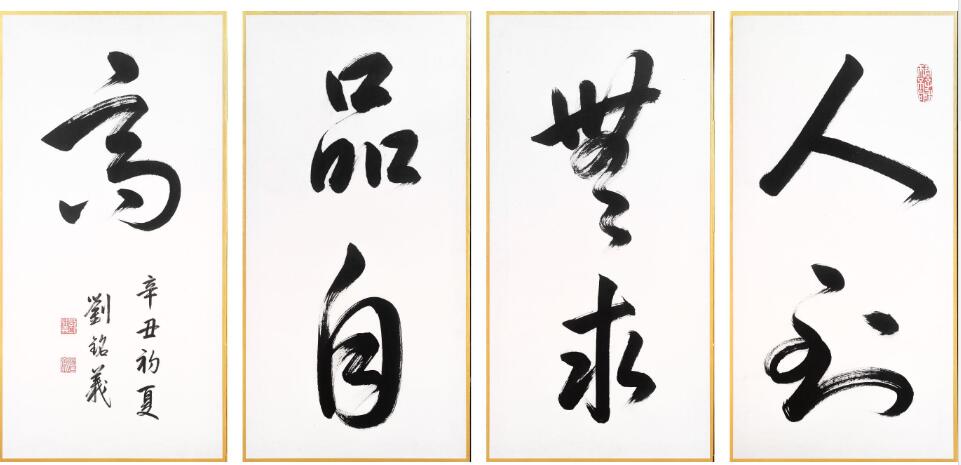 人到
無求
品自
高
辛丑初夏
劉銘義